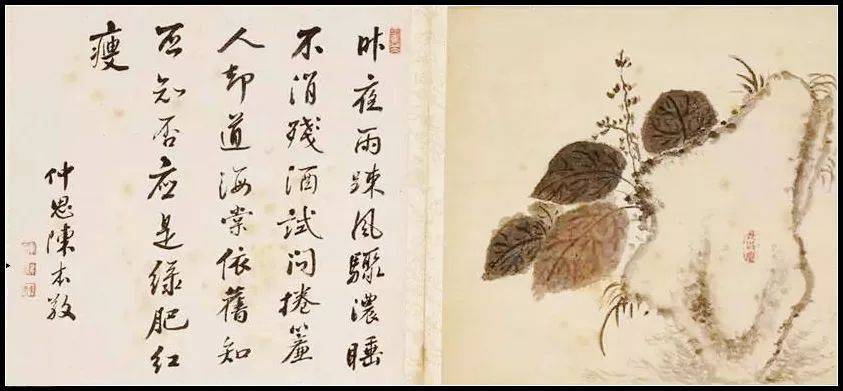 昨夜雨踈風驟濃睡
不消殘酒試问捲簾
人却道海棠依舊知
否知否應是緑肥紅
瘦
仲思陳本敬